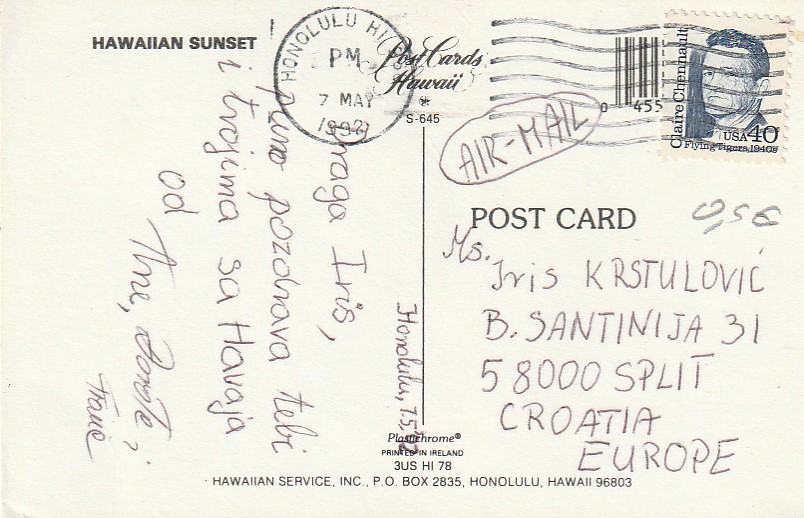 HAWAIIAN SUNSET
HONOLULU HI
PM
7 MAY
1992
Post Cards
Hawaii
S-645
0 455
Claire Chennault
USA40
Flying Tigers, 1940s
AIR-MAIL
POST CARD
0,5€
Ms.
Iris KRSTULOVIĆ
B. SANTINIJA 31
58000 SPLIT
CROATIA
EUROPE
Honolulu, 7.5.92
Draga Iris,
puno pozdrava tebi
i tvojima sa Havaja
od
Ane, Đorđe i
Frane
Plastichrome®
PRINTED IN IRELAND
3US HI 78
HAWAIIAN SERVICE, INC., P.O. BOX 2835, HONOLULU, HAWAII 96803